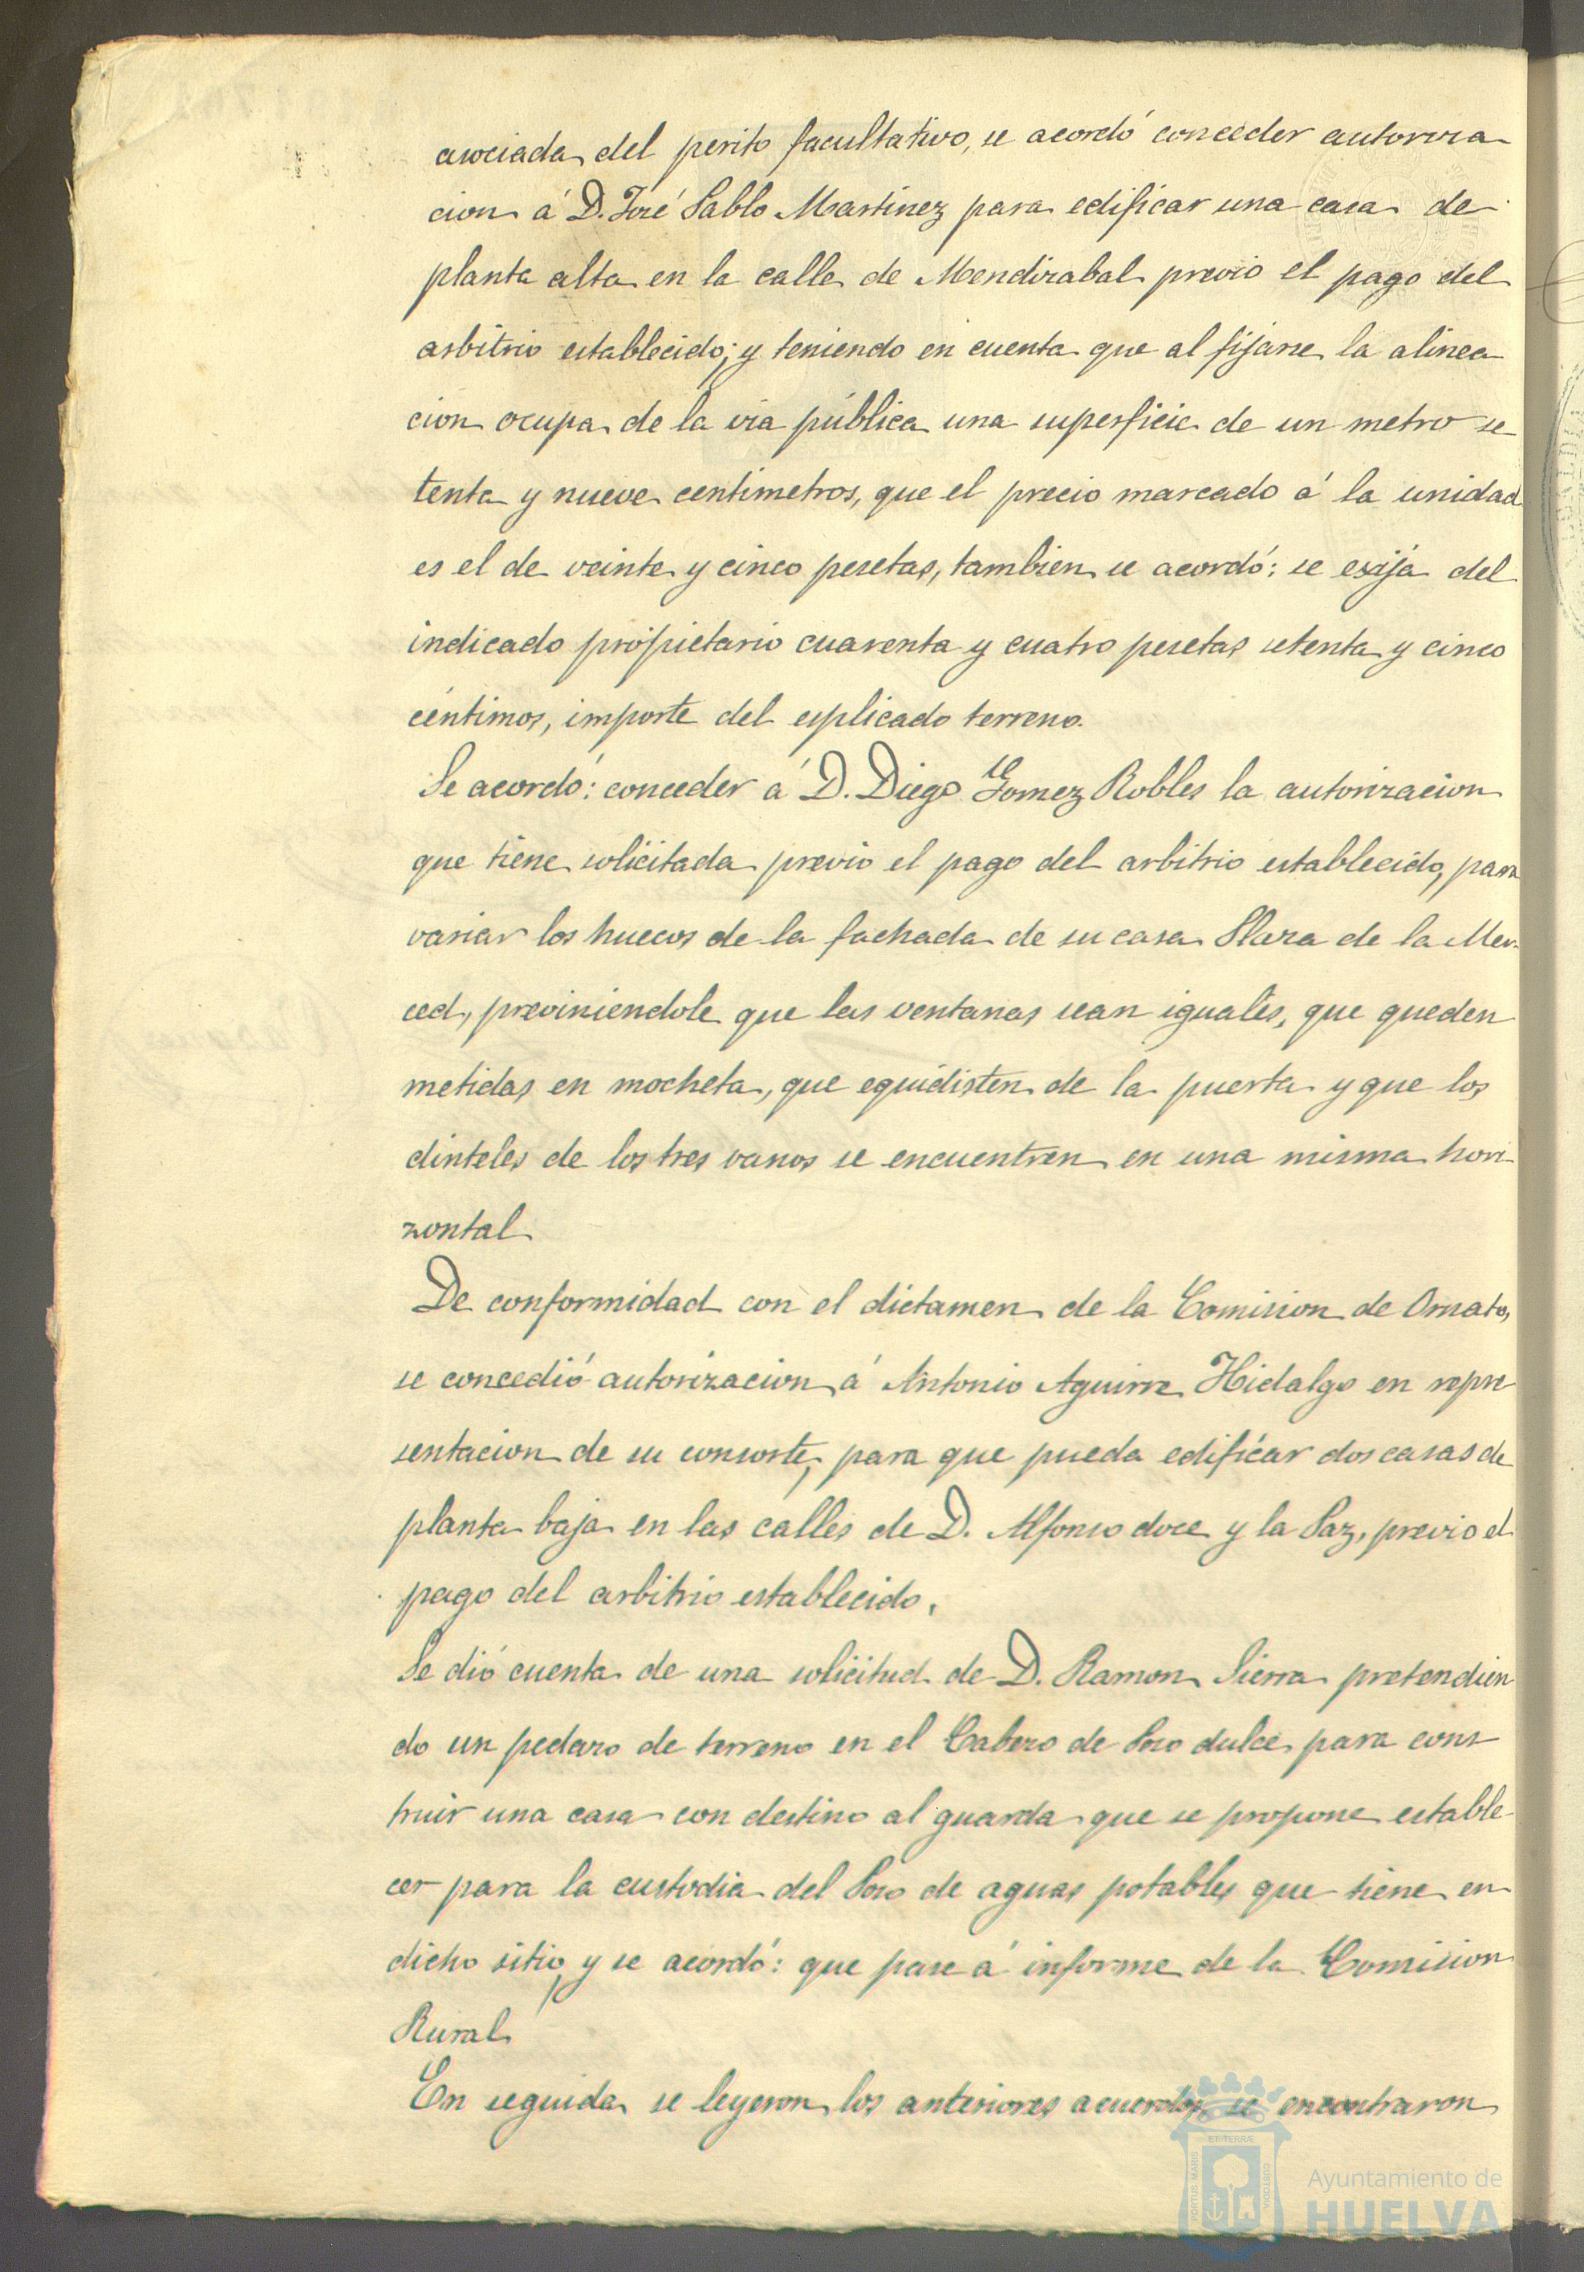 asociada del perito facultativo, se acordó conceder autoriza
cion á D. José Pablo Martinez para edificar una casa de
planta alta en la calle de Mendizabal previo el pago del
arbitrio establecido; y teniendo en cuenta que al fijarse la alinea
cion ocupa de la via pública una superficie de un metro se-
tenta y nueve centimetros, que el precio marcado á la unidad
es el de veinte y cinco pesetas, tambien se acordó: se exija del
indicado propietario cuarenta y cuatro pesetas setenta y cinco
céntimos, importe del esplicado terreno.
Se acordó: conceder á D. Diego Gomez Robles la autorizacion
que tiene solicitada previo el pago del arbitrio establecido, para
variar los huecos de la fachada de su casa Plaza de la Mer-
ced, previniendole que las ventanas sean iguales, que queden
metidas en mocheta, que equidisten de la puerta y que los
dinteles de los tres vanos se encuentren en una misma hori-
zontal
De conformidad con el dictamen de la Comision de Ornato,
se concedió autorizacion á Antonio Aguirre Hidalgo en repre-
sentacion de su consorte, para que pueda edificar dos casas de
planta baja en las calles de D. Alfonso doce y la Paz, previo el
pago del arbitrio establecido.
Se dió cuenta de una solicitud de D. Ramon Sierra pretendien
do un pedazo de terreno en el Cabezo de Pozo dulce para cons-
truir una casa con destino al guarda que se propone estable-
cer para la custodia del Pozo de aguas potables que tiene en
dicho sitio, y se acordó: que pase á informe de la Comision
Rural
En seguida se leyeron los anteriores acuerdos, se encontraron
ET TERRÆ
PORTUS MARIS
CUSTODIA
Ayuntamiento de
HUELVA